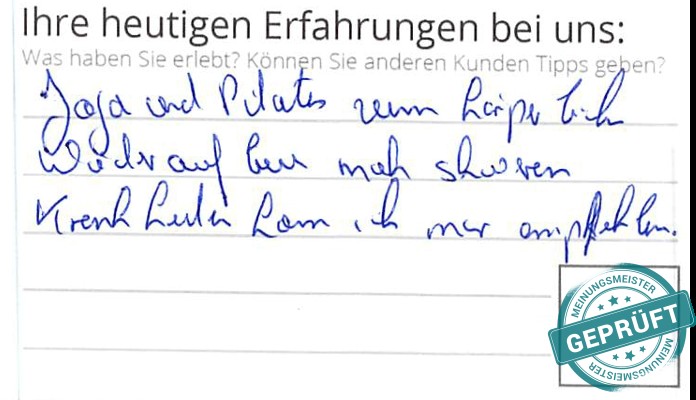 Ihre heutigen Erfahrungen bei uns:
Was haben Sie erlebt? Können Sie anderen Kunden Tipps geben?
Joga und Pilates zum körperlich
Wider aufbau nach shweren
Krenkheiten kann ich nur empfehlen.
MEINUNGSMEISTER
GEPRÜFT
MEINUNGSMEISTER